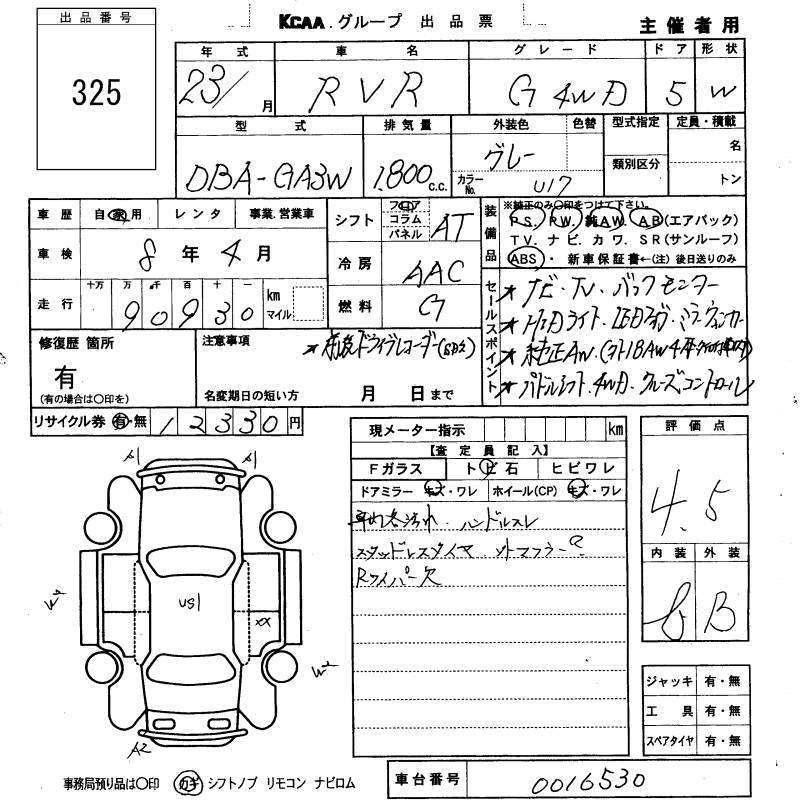 出品番号
325
KCAA.グループ 出品票
主催者用
年式 車名 グレード ドア 形状
23/ 月 RVR G 4WD 5 W
型式 排気量 外装色 色替 型式指定 定員・積載
DBA-GA3W 1,800 c.c. グレー 名
カラーNo. U17 類別区分 トン
車歴 自家用 レンタ 事業.営業車
車検 8年 4月
走行 十万 万 千 百 十 一
90930 km マイル
シフト フロア コラム パネル AT
冷房 AAC
燃料 G
装備品
※純正のみ〇印をつけて下さい。
PS. PW. 純AW. AB(エアバック)
TV. ナビ. カワ. SR(サンルーフ)
ABS・ 新車保証書←(注) 後日送りのみ
セールスポイント
★ナビ・TV.バックモニター
★HIDライト.LEDフォグ.ミラーウィンカー
★純正AW.
★パドルシフト.4WD.クルーズコントロール
修復歴 箇所
有
(有の場合は〇印を)
注意事項
★ ドライブレコーダー
名変期日の短い方 月 日まで
リサイクル券 有・無 12330円
現メーター指示 km
【査定員記入】
Fガラス トビ石 ヒビワレ
ドアミラー キズ・ワレ ホイール(CP) キズ・ワレ
ハンドルスレ
スタッドレスタイヤ
Rワイパー欠
評価点
4.5
内装 外装
B
ジャッキ 有・無
工具 有・無
スペアタイヤ 有・無
A1 A1
US1
XX
W2
W2
A2
事務局預り品は〇印 カギ シフトノブ リモコン ナビロム
車台番号 0016530